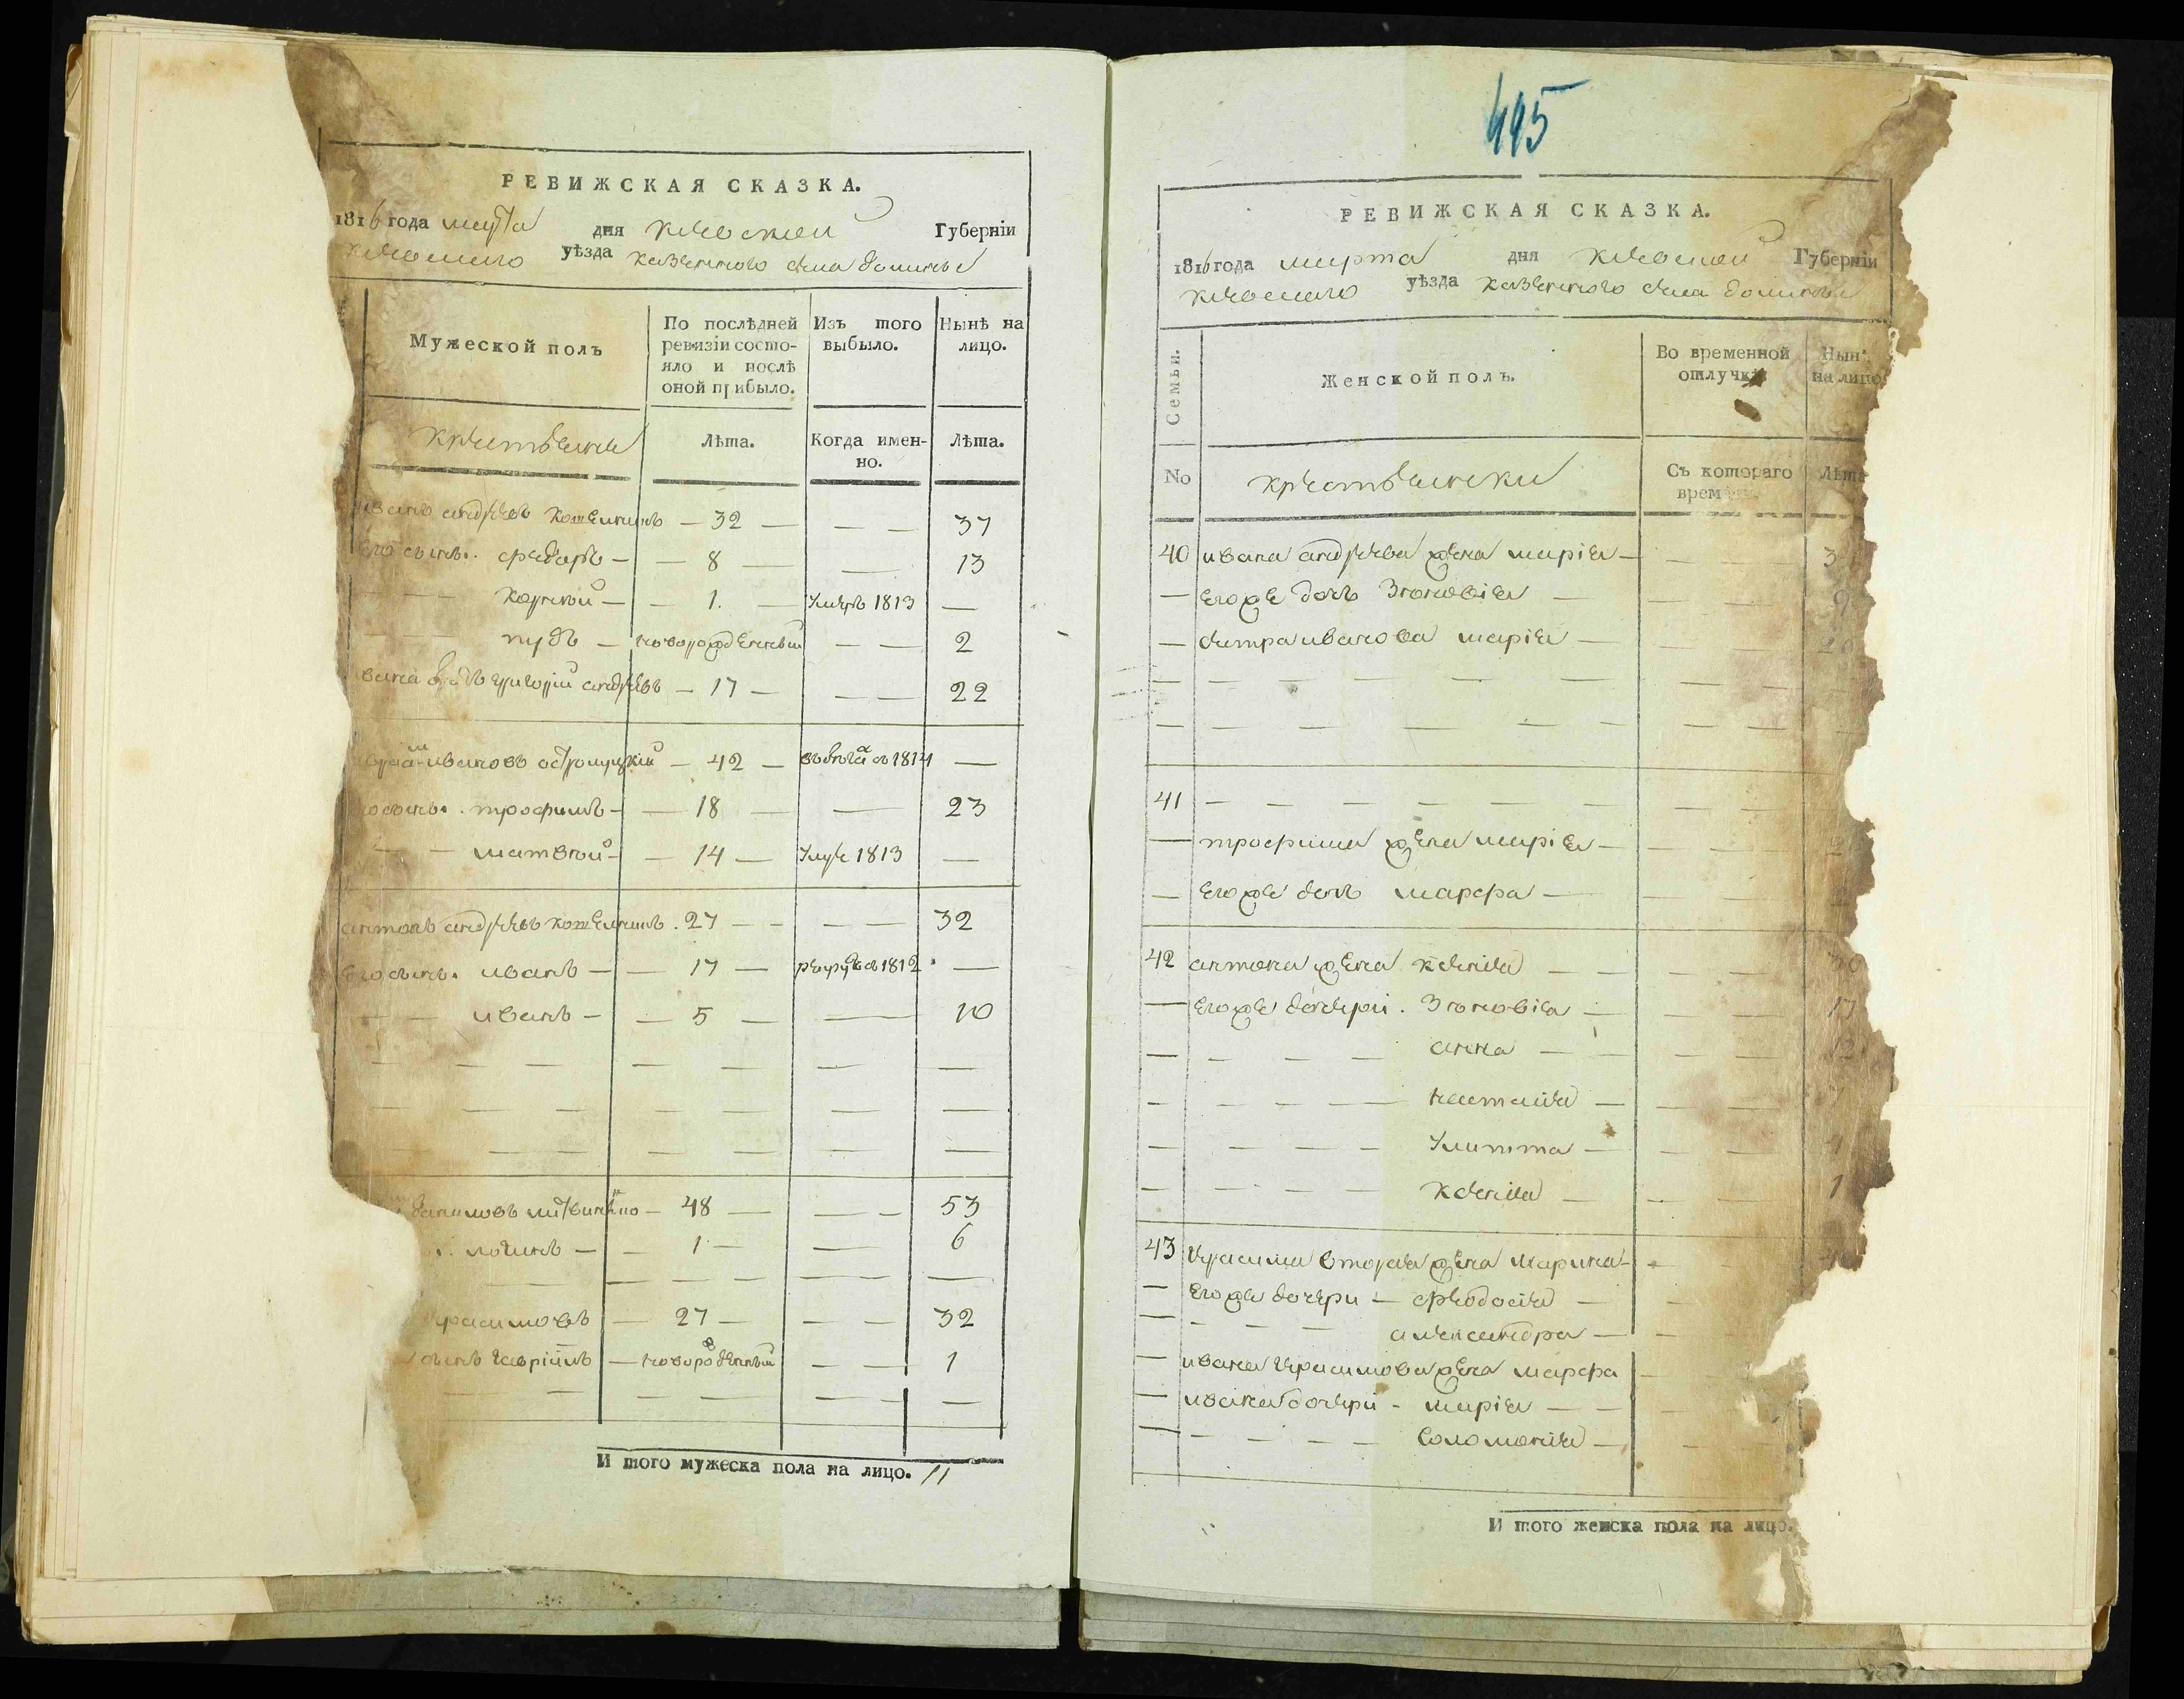 РЕВИЖСКАЯ СКАЗКА.
1816 года марта дня киевской Губерніи
киевского уѣзда казенного села
Мужеской полъ
По послѣдней ревизіи состояло и послѣ оной прибыло.
Изъ того выбыло.
Нынѣ на лицо.
крестьяне
Лѣта.
Когда именно.
Лѣта.
иванъ андреевъ — 32 — — — 37
его сынъ. федоръ — — 8 — — 13
корнѣй — — 1. — умеръ 1813 —
пудъ — новорожденный — — 2
братъ григорій андреевъ — 17 — — — 22
ивановъ — 42 — 1814 —
сынъ. трофимъ — — 18 — — 23
матвѣй — — 14 — умре 1813 —
антонъ андреевъ . 27 — — — — 32
его сынъ. иванъ — — 17 — 1812 —
иванъ — — 5 — — 10
даниловъ — 48 — — — 53
— — 1 — — 6
герасимовъ — 27 — — — 32
сынъ гавріилъ — новорожденный — — 1
И того мужеска пола на лицо. 11
495
РЕВИЖСКАЯ СКАЗКА.
1816 года марта дня киевской Губерніи
киевского уѣзда казенного села
Семьи.
Женской полъ.
Во временной отлучкѣ
Нынѣ на лицо
No
крестьянки
Съ котораго врем
Лѣта
40 ивана андреева жена марія —
— его же дочь зѣновія —
— сестра иванова марія —
41 — — — — — —
— трофима жена марія —
— его же дочь марфа —
42 антона жена ксенія — 30
— его же дочери. зѣновія — 17
— анна — 12
— настасія — 7
— улитта — 4
— ксенія — 1
43 герасима вторая жена марина —
— его же дочери — феодосія —
— александра —
— ивана герасимова жена марфа
— ивана дочери — марія —
— соломонія —
И того женска пола на лицо.